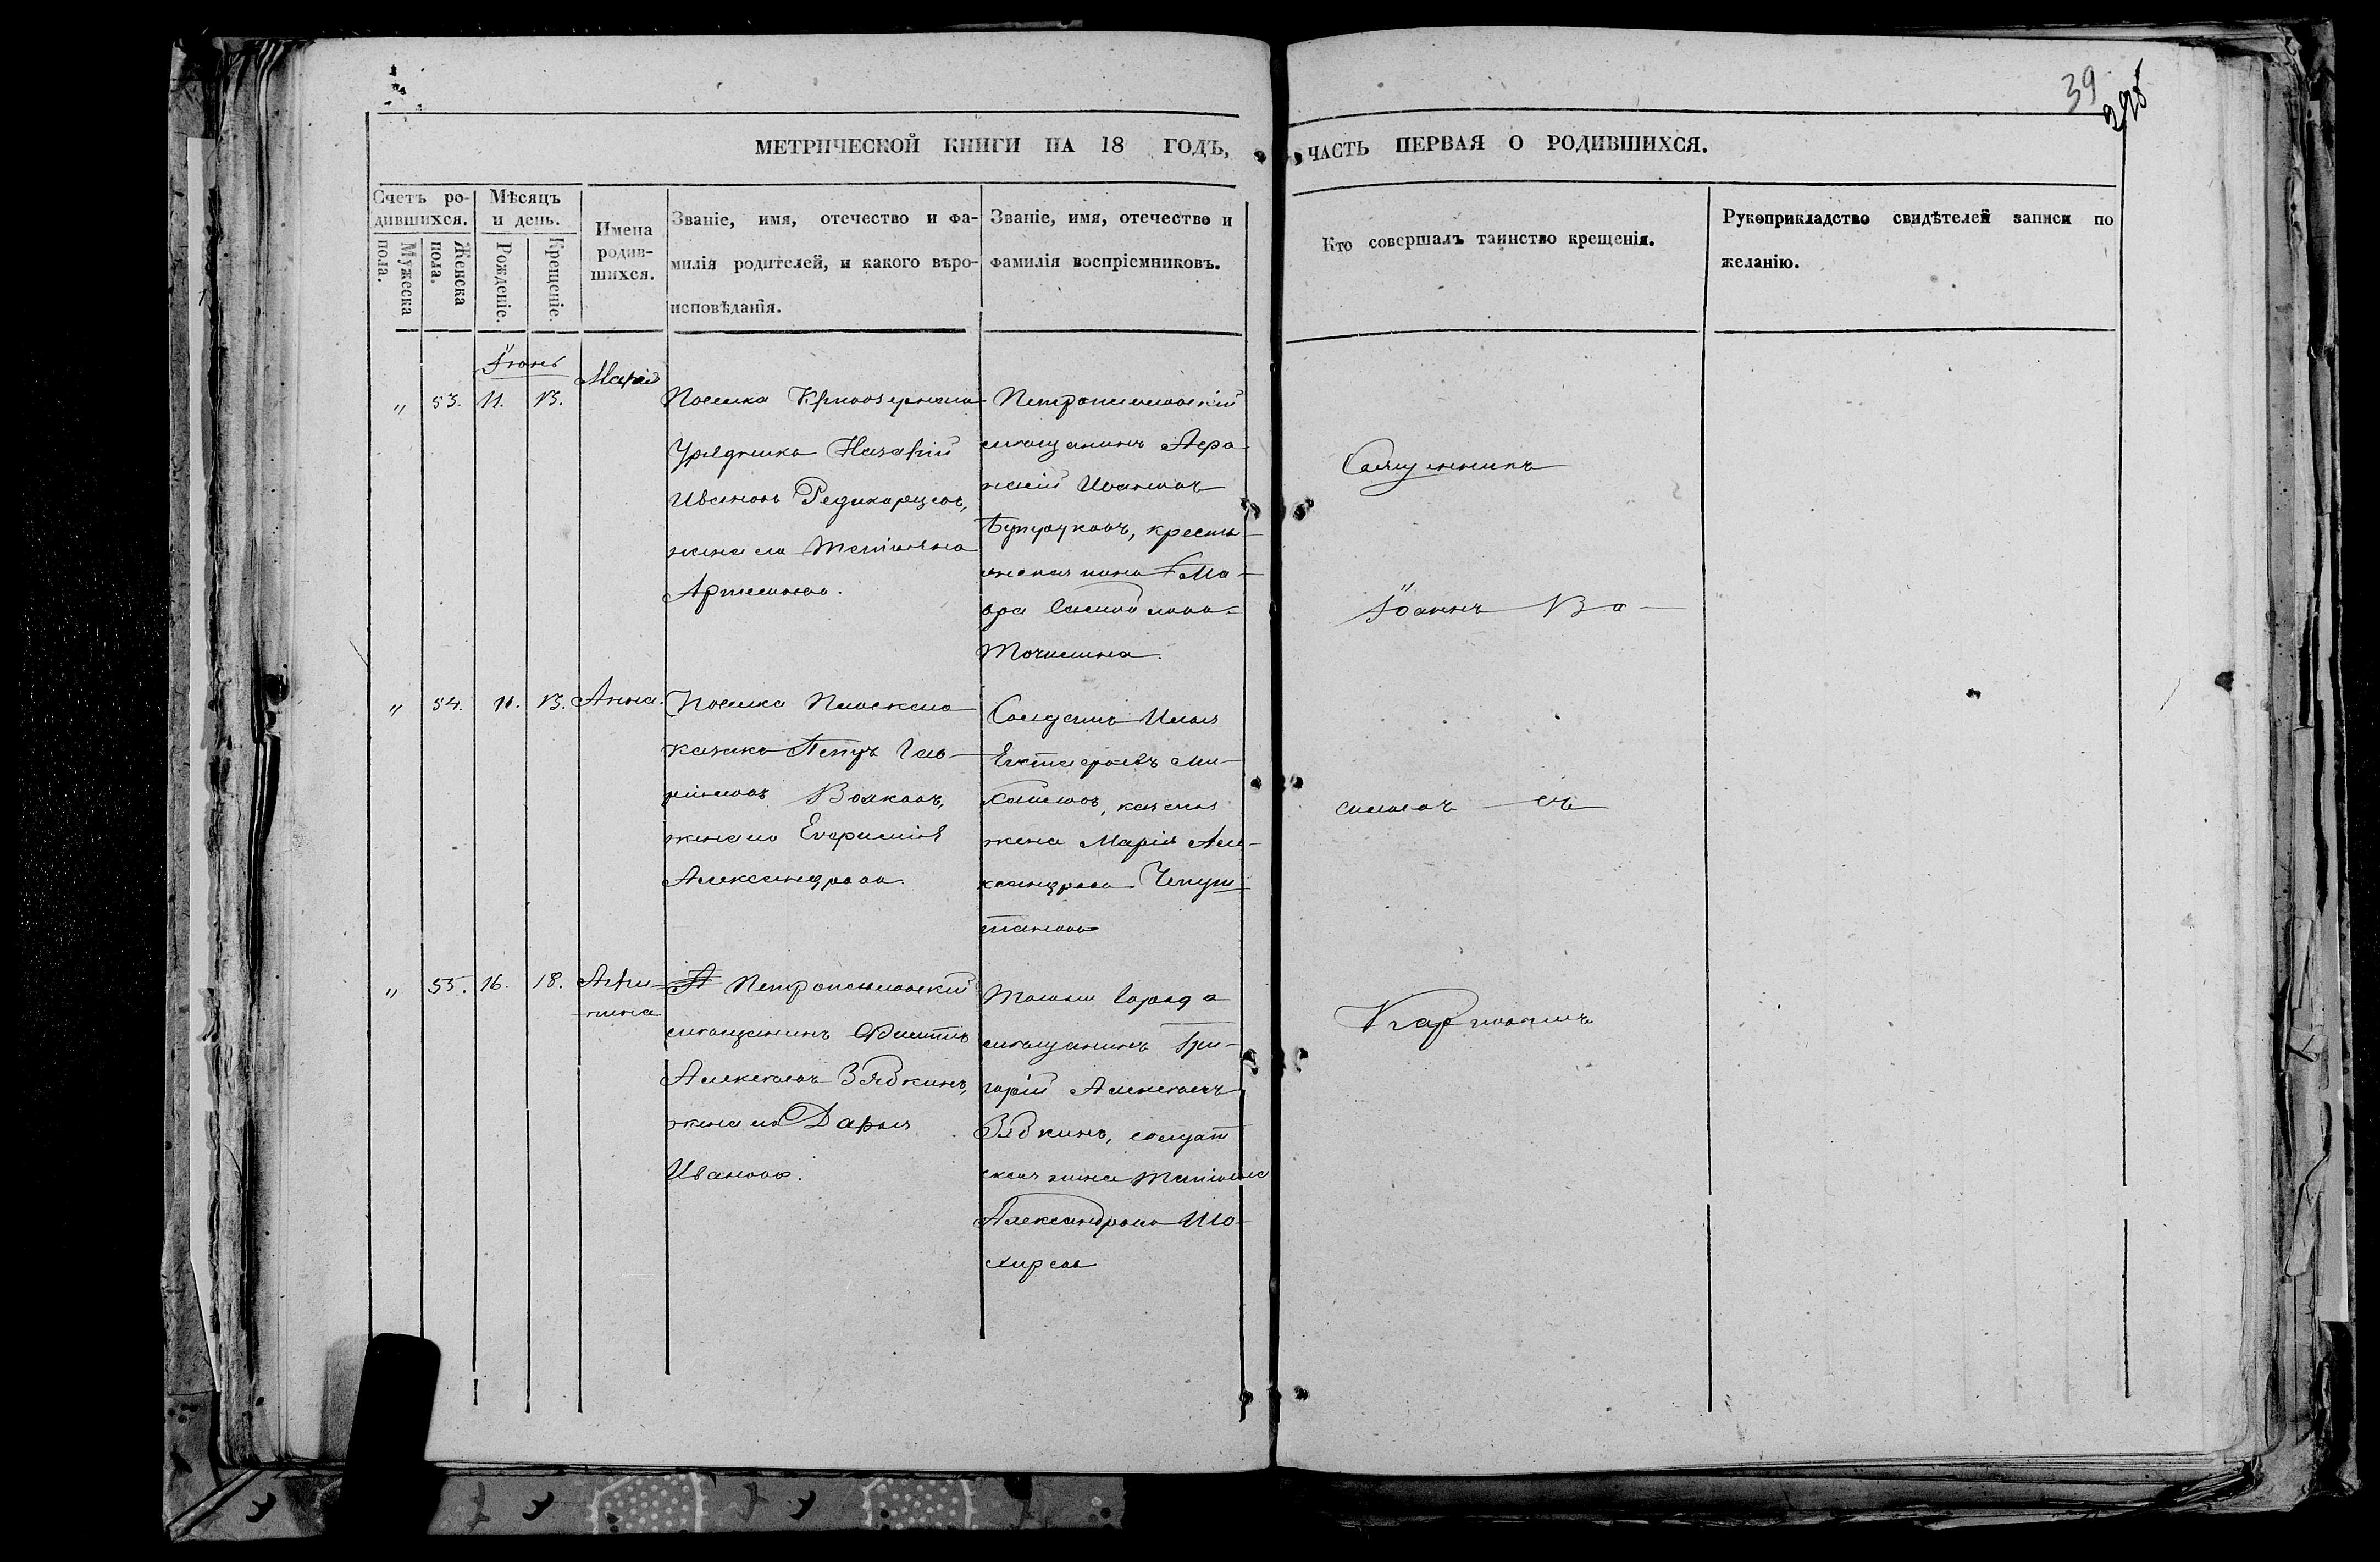 39
МЕТРИЧЕСКОЙ КНИГИ НА 18 ГОДЪ,
ЧАСТЬ ПЕРВАЯ О РОДИВШИХСЯ.
Счетъ ро-
дившихся.
Мужеска
пола.
Женска
пола.
Мѣсяцъ
и день.
Рожденіе.
Крещеніе.
Имена
родив-
шихся.
Званіе, имя, отечество и фа-
милія родителей, и какого вѣро-
исповѣданія.
Званіе, имя, отечество и
фамилія воспріемниковъ.
Кто совершалъ таинство крещенія.
Рукоприкладство свидѣтелей записи по
желанію.
Іюнь
„ 53. 11. 13.
Марія
Поселка
Урядника Назарій
Ивановъ Редикорцевъ,
жена его Татіяна
Артемьева.
Петропавловскій
мѣщанинъ Афа-
насій Ивановъ
кресть-
янская жена Ма-
вра
Точилина.
„ 54. 11. 13. Анна.
Поселка
казакъ Петръ Гав-
риловъ Волковъ,
жена его Евфимія
Александрова.
Солдатъ Илья
Ми-
хайловъ, казачья
жена Марія Але-
ксандрова Чепуш-
танова
„ 55. 16. 18. Агри-
пина
Петропавловскій
мѣщанинъ Филиппъ
Алексѣевъ Зябкинъ,
жена его Дарья
Иванова.
Тогоже города
мѣщанинъ Гри-
горій Алексѣевъ
Зябкинъ, солдат
ская жена Татіяна
Александрова Шо-
хирева
Священникъ
Іоаннъ Ва-
сильевъ съ